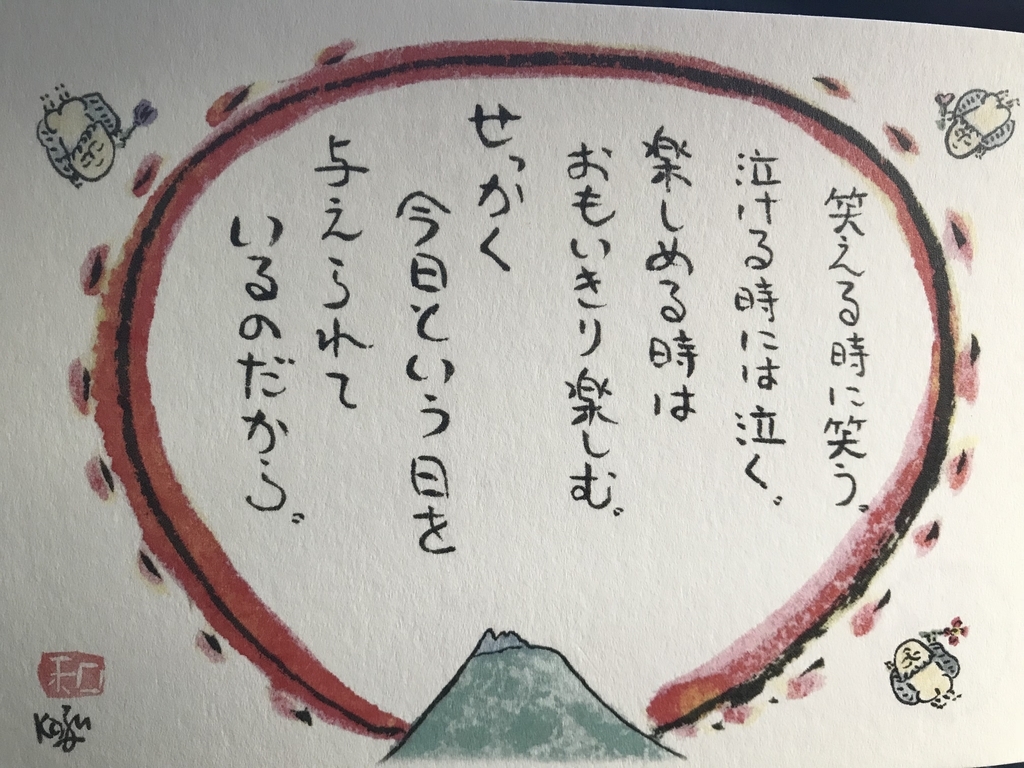 笑える時に笑う。
泣ける時には泣く。
楽しめる時は
おもいきり楽しむ。
せっかく
今日という日を
与えられて
いるのだから。
和